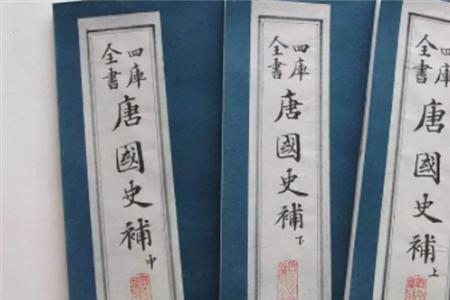 四庫全書
唐國史補上
四庫全書
唐國史補下
四庫全書
唐國史補中